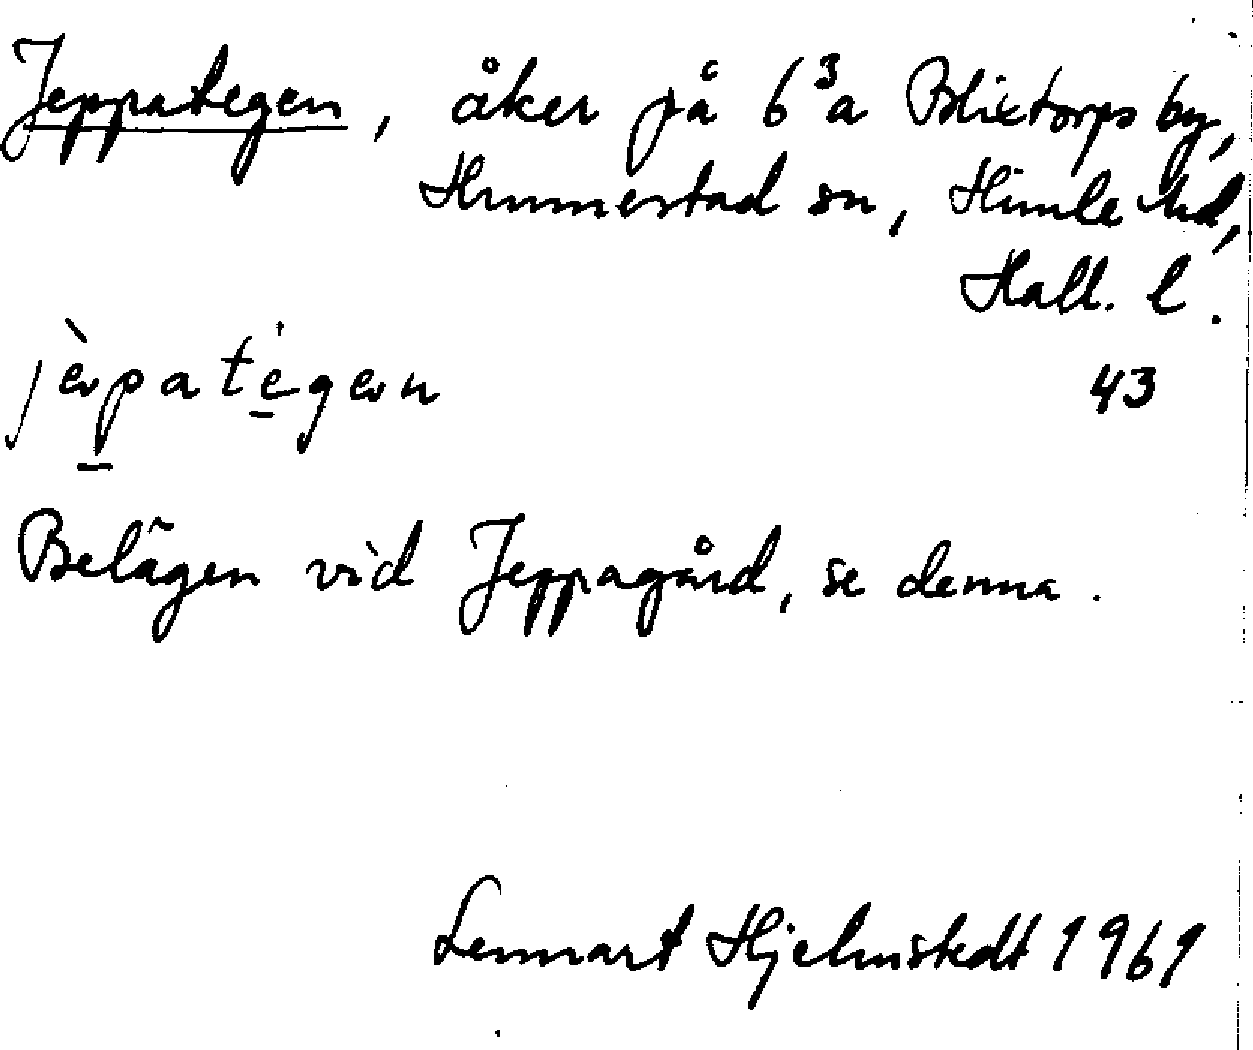 Jeppategen, åker på 6³a Blixtorps by,
Hunnestad sn, Himle hd,
Hall. l.
jèpatégen 43
Belägen vid Jeppagård, se denna.
Lennart Hjelmstedt 1961